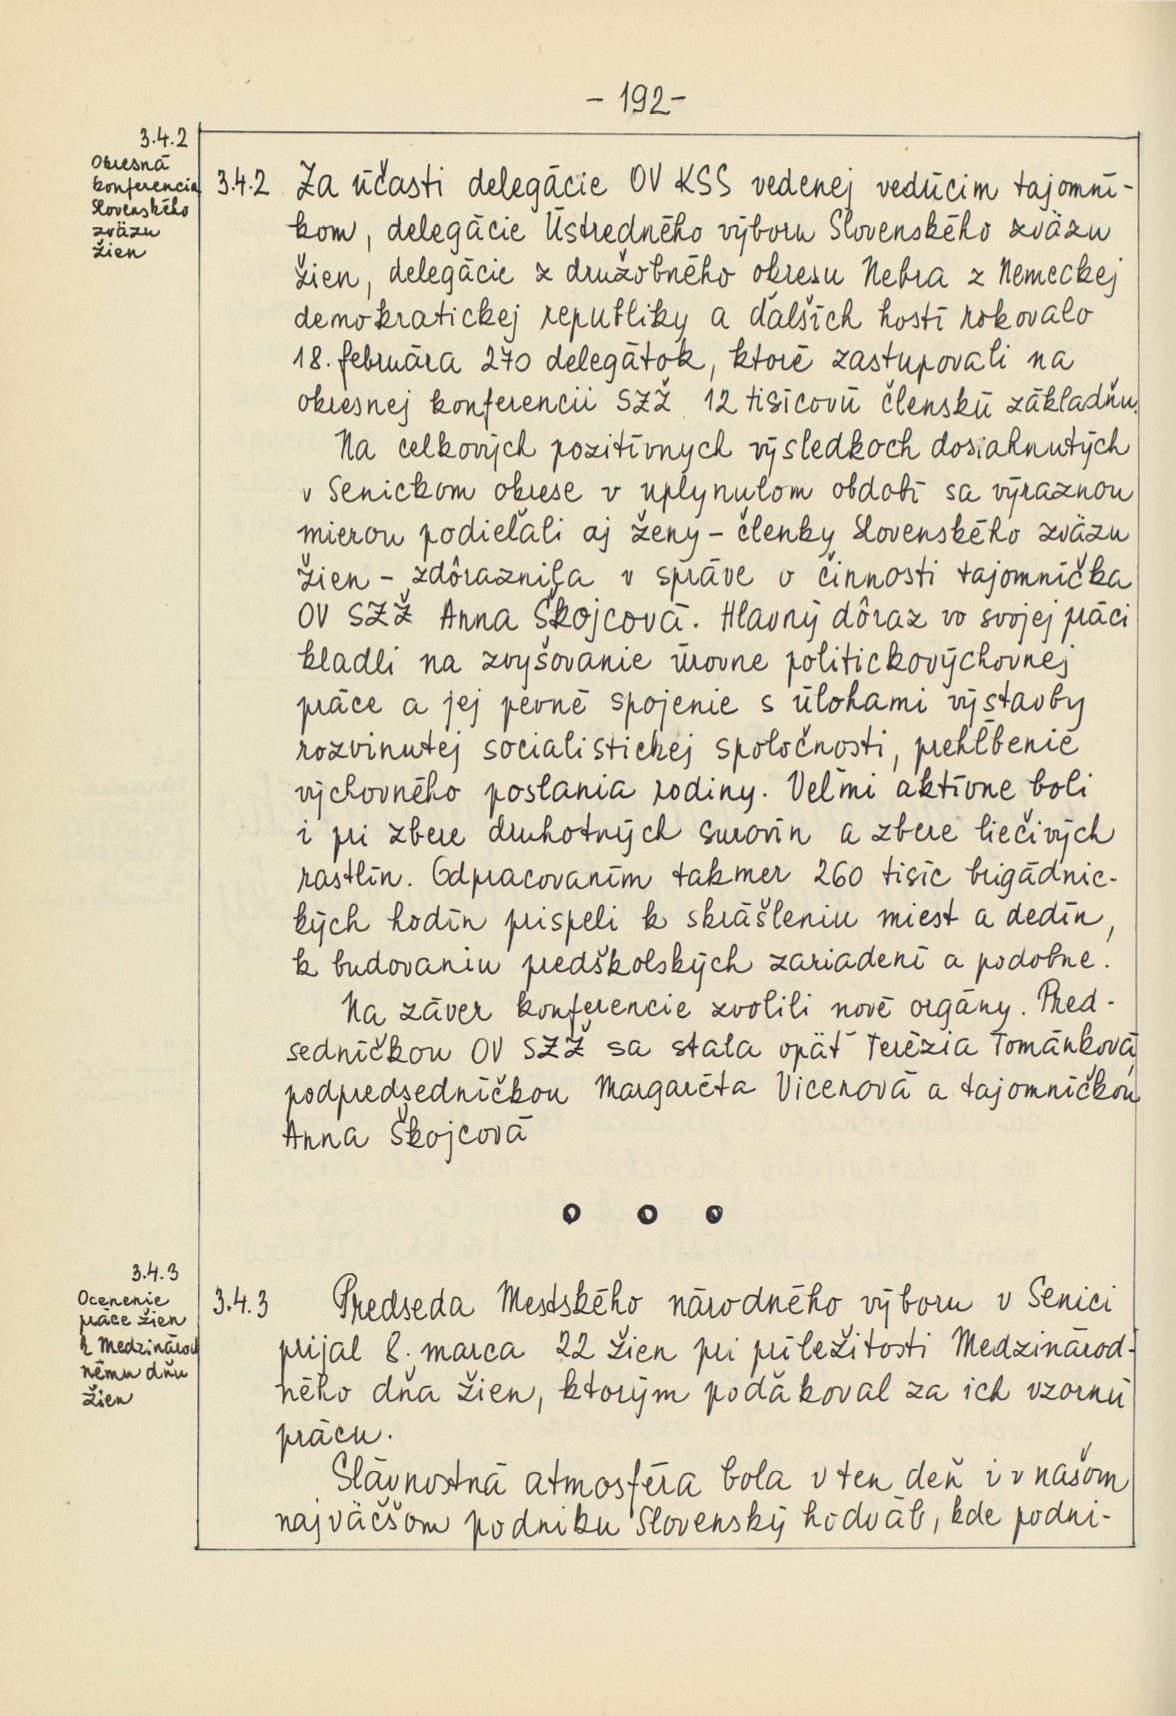 - 192 -
3.4.2
Okresná
konferencia
Slovenského
zväzu
žien
3.4.2 Za účasti delegácie OV KSS vedenej vedúcim tajomní-
kom, delegácie Ústredného výboru Slovenského zväzu
žien, delegácie z družobného okresu Nebra z Nemeckej
demokratickej republiky a ďalších hostí rokovalo
18. februára 270 delegátok, ktoré zastupovali na
okresnej konferencii SZŽ 12 tisícovú členskú základňu.
Na celkových pozitívnych výsledkoch dosiahnutých
v Senickom okrese v uplynulom období sa výraznou
mierou podieľali aj ženy - členky Slovenského zväzu
žien - zdôraznila v správe o činnosti tajomníčka
OV SZŽ Anna Škojcová. Hlavný dôraz vo svojej práci
kladli na zvyšovanie úrovne politickovýchovnej
práce a jej pevné spojenie s úlohami výstavby
rozvinutej socialistickej spoločnosti, prehĺbenie
výchovného poslania rodiny. Veľmi aktívne boli
i pri zbere druhotných surovín a zbere liečivých
rastlín. Odpracovaním takmer 260 tisíc brigádnic-
kých hodín prispeli k skrášleniu miest a dedín,
k budovaniu predškolských zariadení a podobne.
Na záver konferencie zvolili nové orgány. Pred-
sedníčkou OV SZŽ sa stala opäť Terézia Tománková
podpredsedníčkou Margaréta Vicenová a tajomníčkou
Anna Škojcová
o o o
3.4.3
Ocenenie
práce žien
k Medzinárod
nému dňu
žien
3.4.3 Predseda Mestského národného výboru v Senici
prijal 8. marca 22 žien pri príležitosti Medzinárod-
ného dňa žien, ktorým poďakoval za ich vzornú
prácu.
Slávnostná atmosféra bola v ten deň i v našom
najväčšom podniku Slovenský hodváb, kde podni-